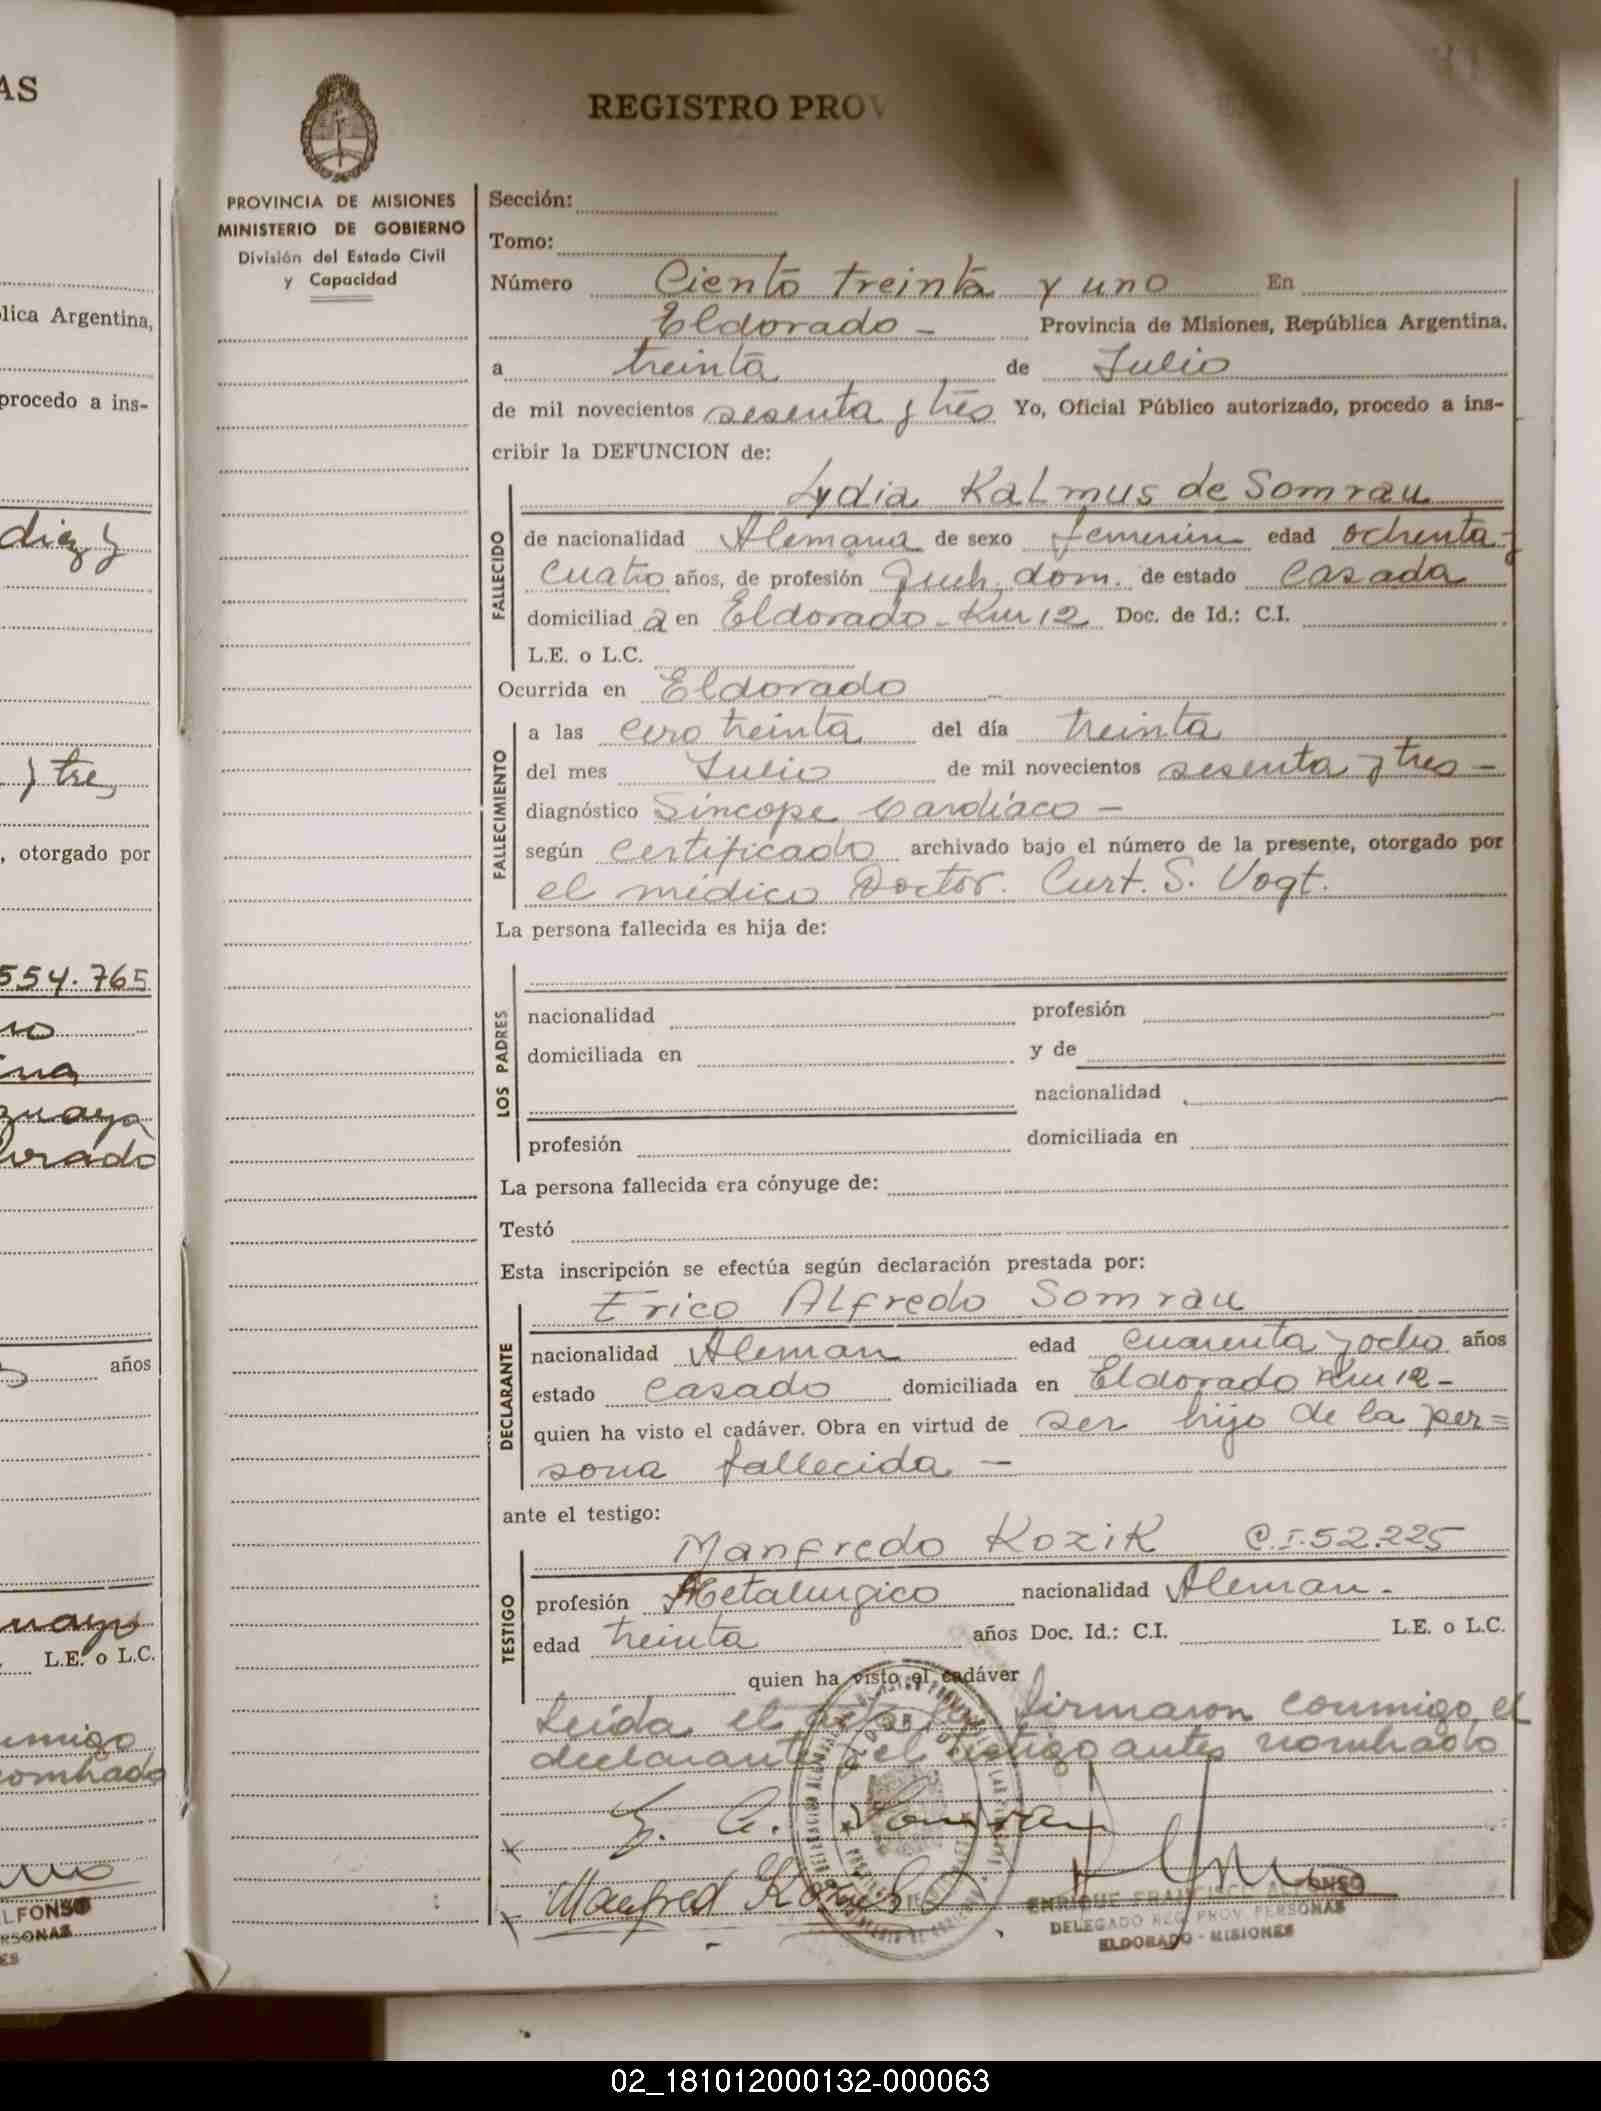 AS
lica Argentina,
procedo a ins-
diez y
y tre,
, otorgado por
554.765
años
L.E. o L.C.
REGISTRO PROV
PROVINCIA DE MISIONES
MINISTERIO DE GOBIERNO
División del Estado Civil
y Capacidad
Sección:
Tomo:
Número Ciento treinta y uno En
Eldorado - Provincia de Misiones, República Argentina.
a treinta de Julio
de mil novecientos sesenta y tres Yo, Oficial Público autorizado, procedo a ins-
cribir la DEFUNCION de:
Lydia Kalmus de Somrau
FALLECIDO
de nacionalidad Alemana de sexo femenin edad ochenta y
cuatro años, de profesión Queh. dom. de estado casada
domiciliad a en Eldorado - Km 12 Doc. de Id.: C.I.
L.E. o L.C.
Ocurrida en Eldorado
FALLECIMIENTO
a las cero treinta del día treinta
del mes Julio de mil novecientos sesenta y tres -
diagnóstico Síncope Cardíaco -
según certificado archivado bajo el número de la presente, otorgado por
el médico Doctor. Curt. S. Vogt.
La persona fallecida es hija de:
LOS PADRES
nacionalidad profesión
domiciliada en y de
nacionalidad
profesión domiciliada en
La persona fallecida era cónyuge de:
Testó
Esta inscripción se efectúa según declaración prestada por:
Erico Alfredo Somrau
DECLARANTE
nacionalidad Aleman edad cuarenta y ocho años
estado casado domiciliada en Eldorado Km 12 -
quien ha visto el cadáver. Obra en virtud de ser hijo de la per=
sona fallecida -
ante el testigo:
Manfredo Kozik C.I.52.225
TESTIGO
profesión Metalurgico nacionalidad Aleman -
edad treinta años Doc. Id.: C.I. L.E. o L.C.
quien ha visto el cadáver
Leída el acta la firmaron conmigo el
declarante y el testigo antes nombrado
E. A. Somrau
Manfred Kozik
ENRIQUE FRANCISCO ALFONSO
DELEGADO REG. PROV. PERSONAS
ELDORADO - MISIONES
02_181012000132-000063